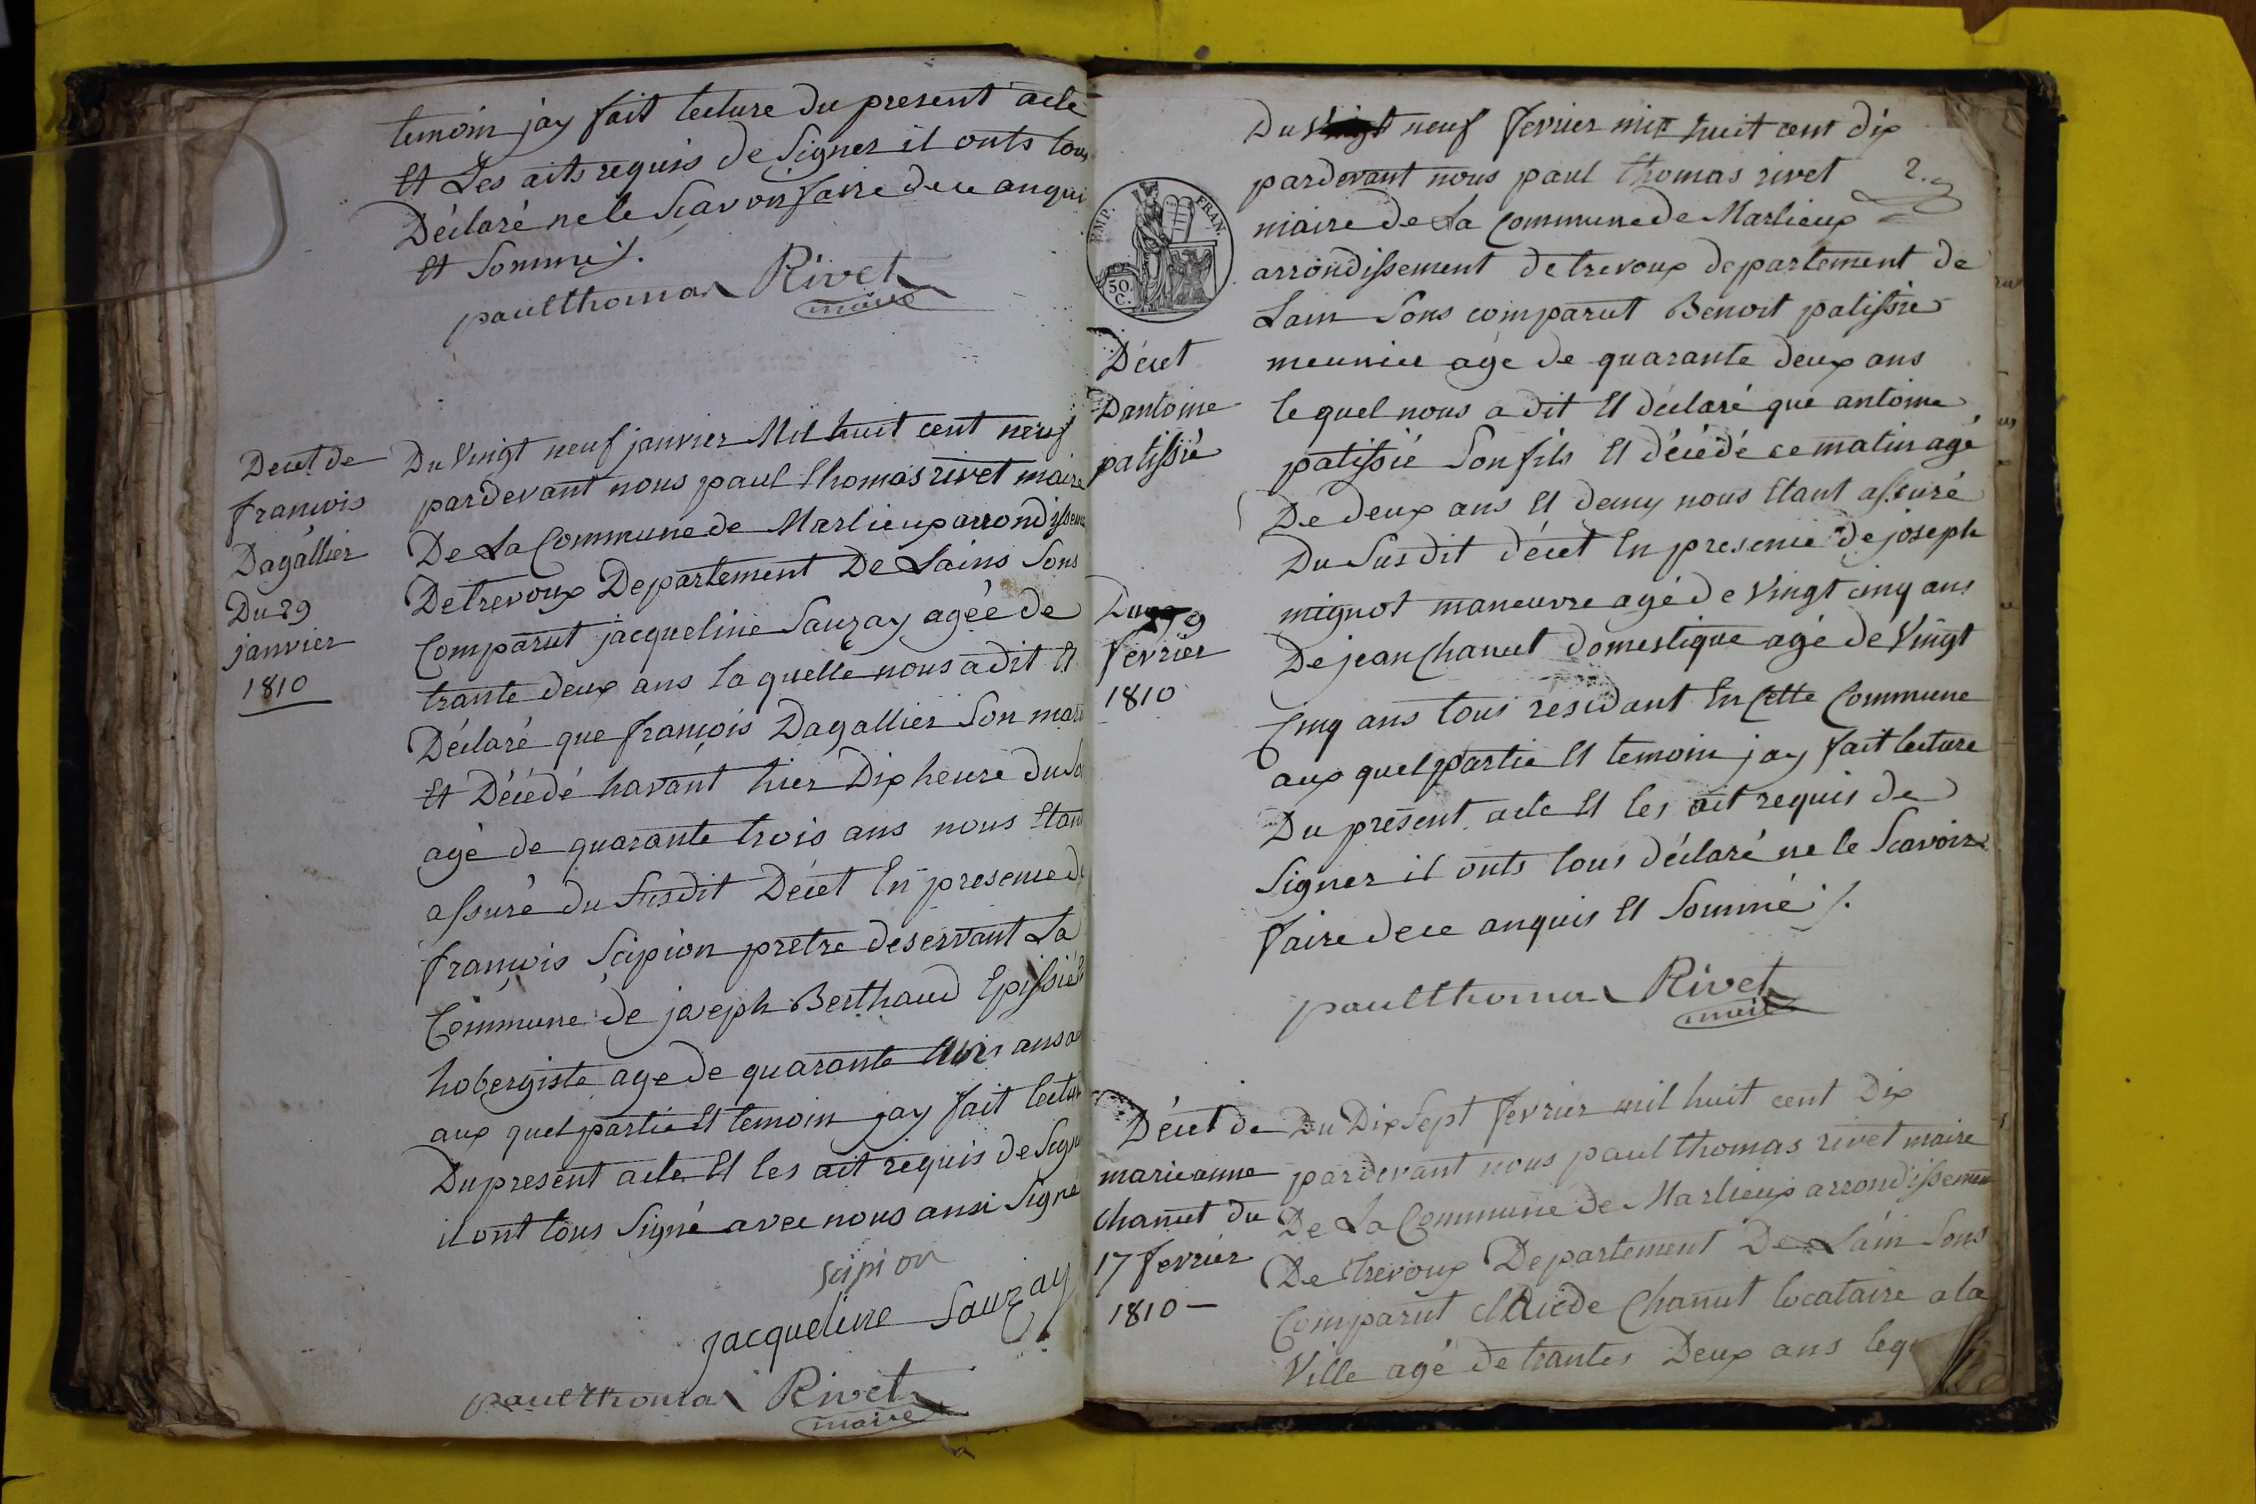 temoin jay fait lecture du present acte
Et Les aits requis de Signer il onts tous
Déclaré ne le Scavoir faire de ce anqui
Et Sommé ./.
paulthomas Rivet
maire
Decet de
francois
Dagallier
Du 29
janvier
1810
Du Vingt neuf janvier Mil huit cent neuf
pardevant nous paul thomas rivet maire
De La Commune de Marlieux arrondissem
De trevoux Departement De Lains Sons
Comparut jacqueline Sauzay agée de
trante deux ans laquelle nous a dit Et
Déclaré que françois Dagallier Son mari
Et Décédé havant hier Dix heure du So
agé de quarante trois ans nous Etant
assuré du Susdit Décet En presence de
françois Scipion pretre deservant La
Commune de joseph Berthaud Epissié
hobergiste age de quarante ans
aux quel partie Et temoin jay fait lectu
Du present acte Et les ait requis de Sign
il ont tous Signé avec nous ansi Signé
Scipion
jacqueline Sauzay
paulthomas Rivet
maire
Du Vingt neuf fevrier mil huit cent dix
pardevant nous paul thomas rivet
2.
maire de La Commune de Marlieux
arrondissement de trevoux departement de
Lain Sons comparut Benoit patissie
meunier age de quarante deux ans
le quel nous a dit Et déclaré que antoine
patissié Son fils Et décédé ce matin agé
De deux ans Et demy nous Etant assuré
Du Susdit décet En presence de joseph
mignot maneuvre agé de Vingt cinq ans
De jean Chanut domestique agé de Vingt
Cinq ans tous residant En Cette Commune
aux quel partie Et temoin jay fait lecture
Du présent acte Et les ait requis de
Signer il onts tous déclaré ne le Scavoir
faire de ce anquis Et Sommé ./.
paulthomas Rivet
maire
EMP. FRAN.
50.
C.
Décet
Dantoine
patissié
Du 9
fevrier
1810
Décet de
marieanne
Chanut du
17 fevrier
1810 —
Du Dix Sept fevrier mil huit cent Dix
pardevant nous paul thomas rivet maire
De La Commune de Marlieux arrondissemen
De trevoux Departement De Lain Sons
Comparut Claude Chanut locataire a la
Ville agé de trantes Deux ans leq